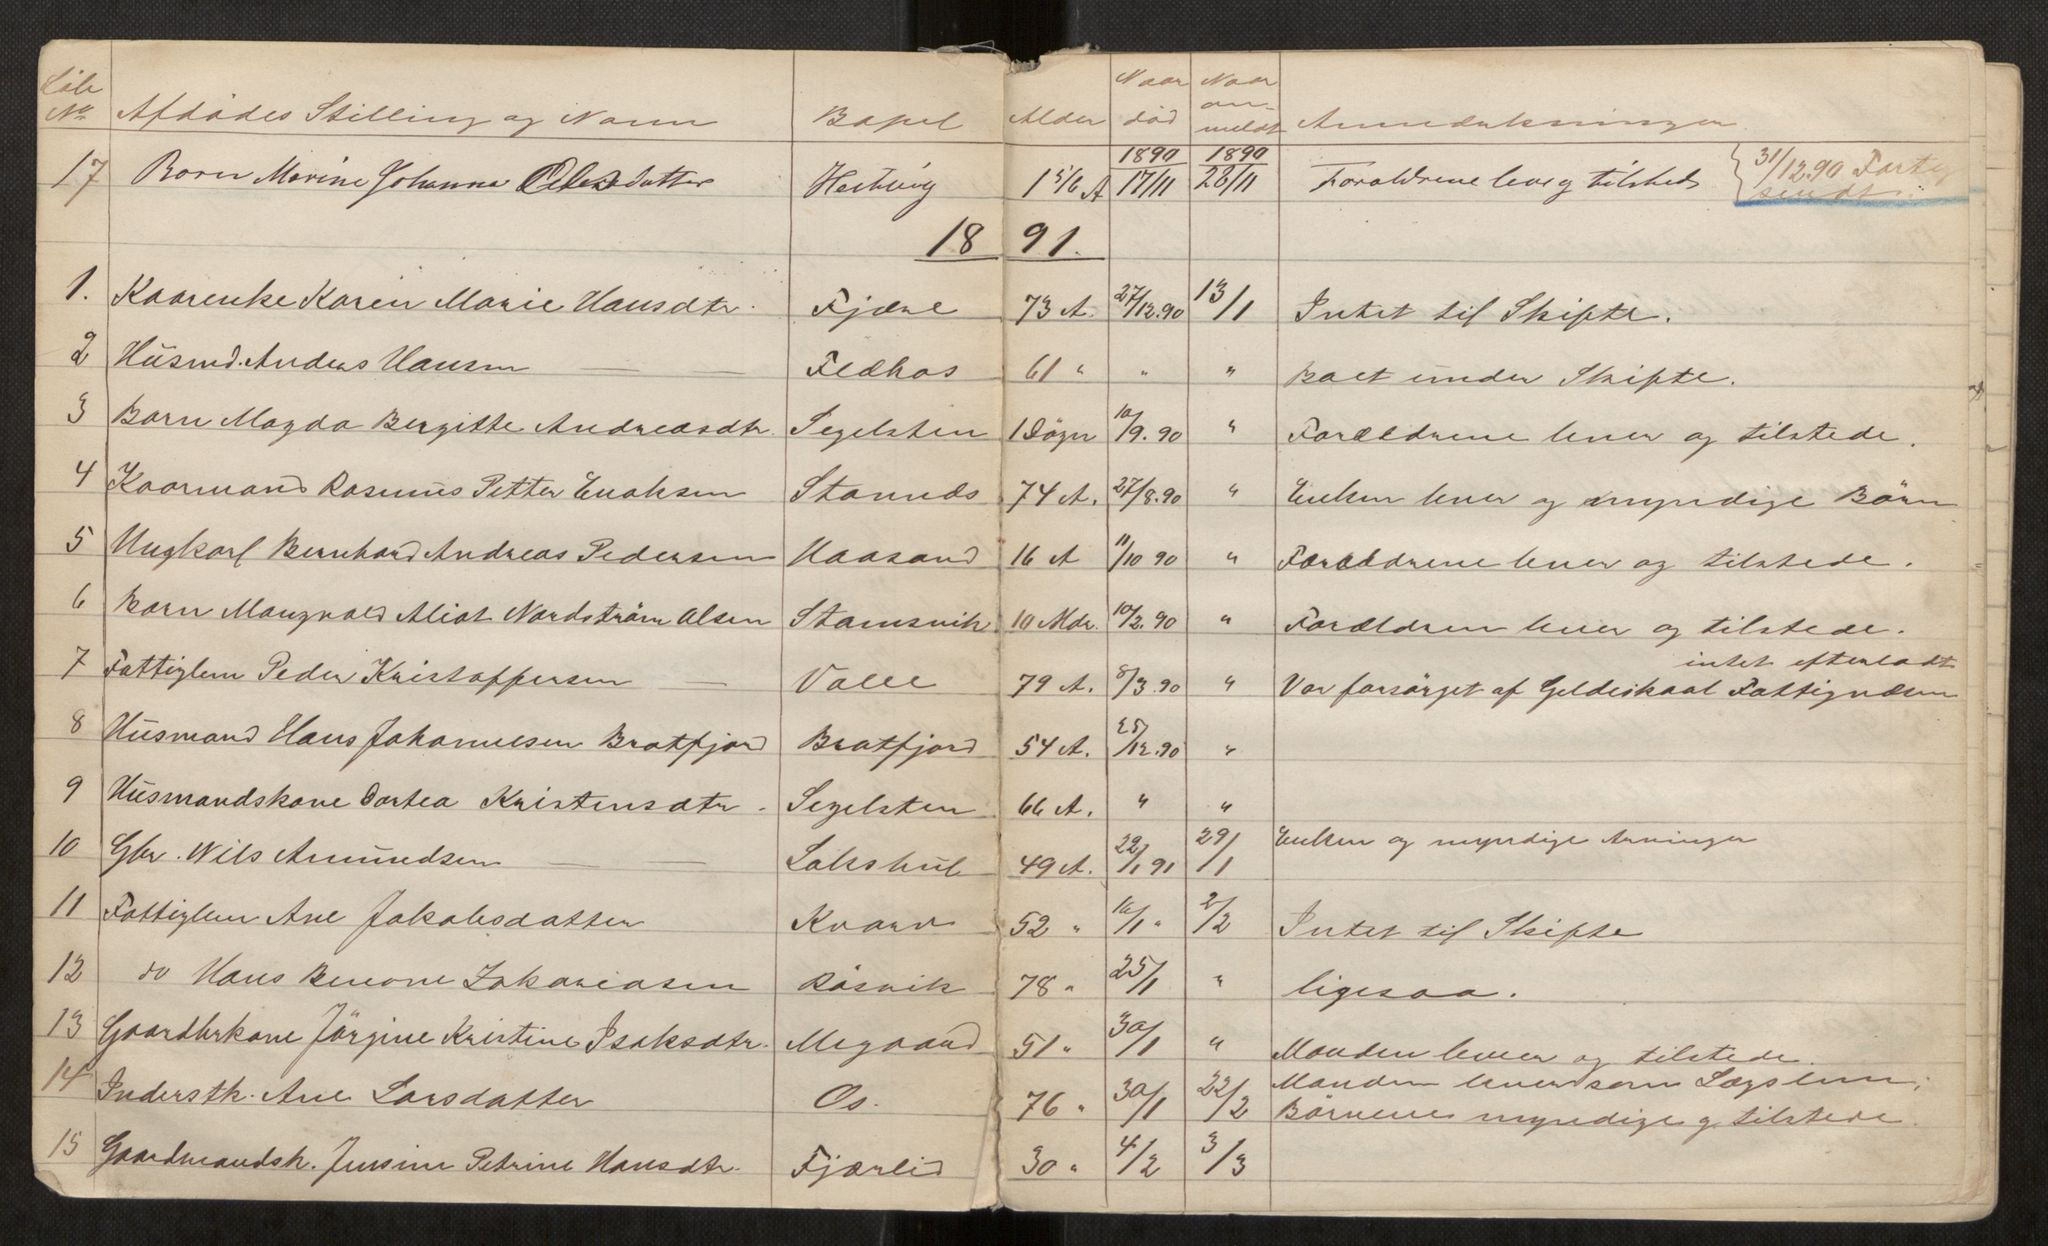 Løbe No. Afdødes Stilling og Navn Bopel Alder Naar død Naar anmeldt Anmærkninger
17 Barn Marine Johanna Olesdatter 1 5/6 A 1890 17/11 1890 28/11 Foraldrene lever og tilsteds 31/12.90 sendt.
1891.
1. Kaarenke Karen Marie Hansdtr. Fjære 73 A. 27/12.90 13/1 Intet til Skifte.
2 Husmd. Anders Hansen — — Fleðnos 61 " " " Boet under Skifte.
3 Barn Magda Bergitte Andreasdtr. Segelsten 1 Døgn 10/9.90 " Forældrene lever og tilstede.
4 Kaarmand Rasmus Petter Enoksen Stamnes 74 A. 27/8.90 " Enken lever og myndige Børn
5 Ungkarl Bernhard Andreas Pedersen Haasand 16 A 11/10 90 " Forældrene lever og tilstede.
6 Barn Mangvald Aliot Nordström Olsen Stamsvik 10 Mdr. 10/2.90 " Forældren lever og tilstede.
7 Fattiglem Peder Kristoffersen — Valle 79 A. 8/3.90 " Var forsørget af Gildeskaal Fattigvæsen intet efterladt
8 Husmand Hans Johannesen Bratfjord Bratfjord 54 A. 25/12.90 "
9 Husmandskone Dortea Kristensdtr. Segelsten 66 A. " "
10 Gbr. Nils Amundsen — — Lakshul 49 A. 22/1 91 29/1 Enken og myndige Arvinger
11 Fattiglem Ane Jakobsdatter Kvarv 52 " 16/1 " 2/2 Intet til Skifte
12 do Hans Benone Zakariasen Røsvik 78 " 25/1 " ligesaa.
13 Gaardbrkone Jørgine Kristine Isaksdtr. Megaard 51 " 30/1 " Manden lever og tilstede.
14 Inderstk. Ane Larsdatter Os. 76 " 30/1 22/2 Manden lever som Lægslem; Børnene myndige og tilstede.
15 Gaardmandsk. Jensine Petrine Hansdtr. Fjærlid 30 " 4/2 3/3